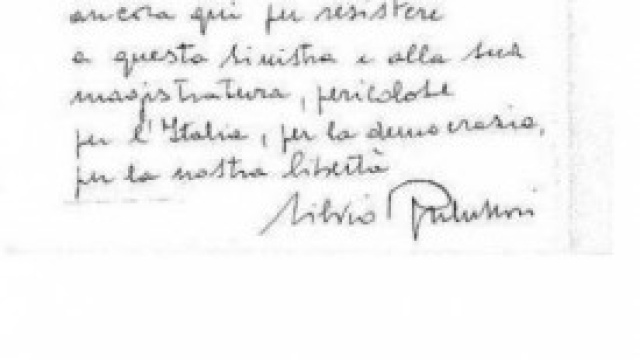 ancora qui per resistere
a questa sinistra e alla sua
magistratura, pericolose
per l'Italia, per la democrazia,
per la nostra libertà
Silvio Berlusconi